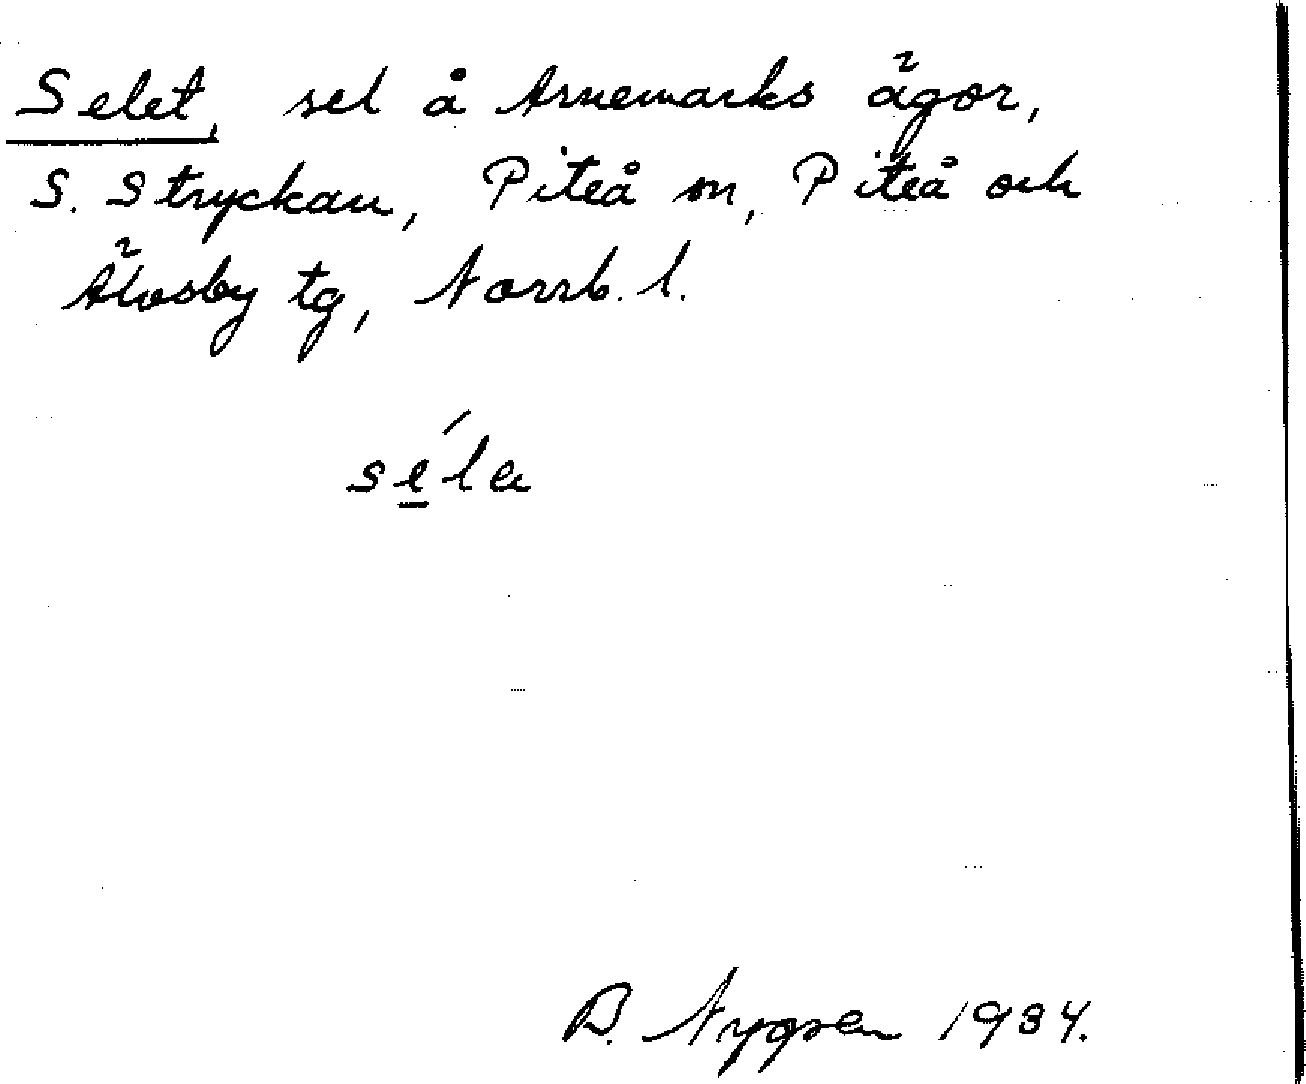 Selet, sel å Arnemarks ägor,
S. Stryckan, Piteå sn, Piteå och
Älvsby tg, Norrb. l.
se̲´la
B. Nygren 1934.